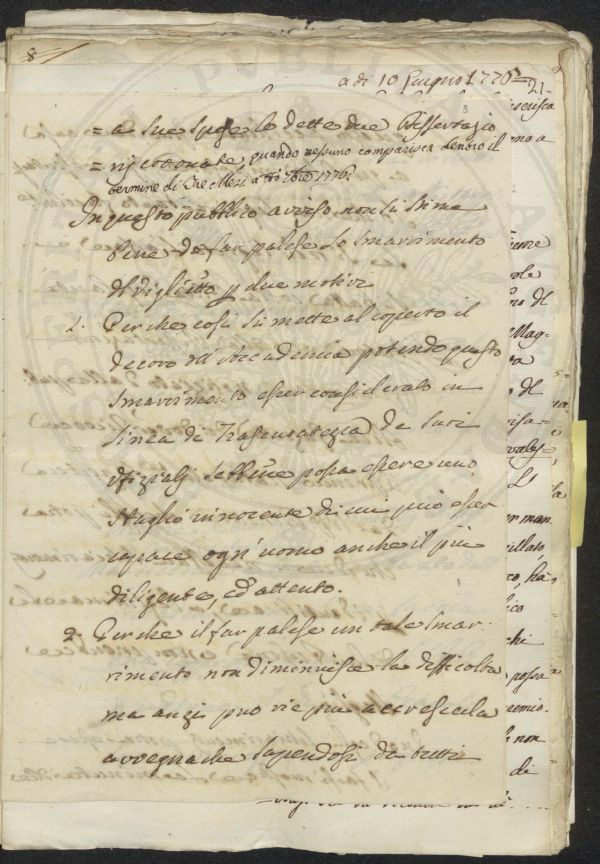 8
a di 10 Giugno 1776
21
= a sue spese le dette due Dissertazio
= ni coronate, quando nessuno comparisca dentro il
termine di tre Mesi a 1776.
In questo pubblico avviso non si stima
bene di far palese lo smarimento
del viglietto p due motivi
1. Perche così si mette al coperto il
decoro dell'Accademia potendo questo
smarimento esser considerato in
linea di trascuratezza de suoi
sebbene possa essere uno
sbaglio innocente di cui può esser
capace ogn'uomo anche il più
diligente, ed attento.
2. Perche il far palese un tale smar-
rimento non diminuisce la difficoltà
ma anzi può vie più accrescerla
avvegnache sapendosi da tutti